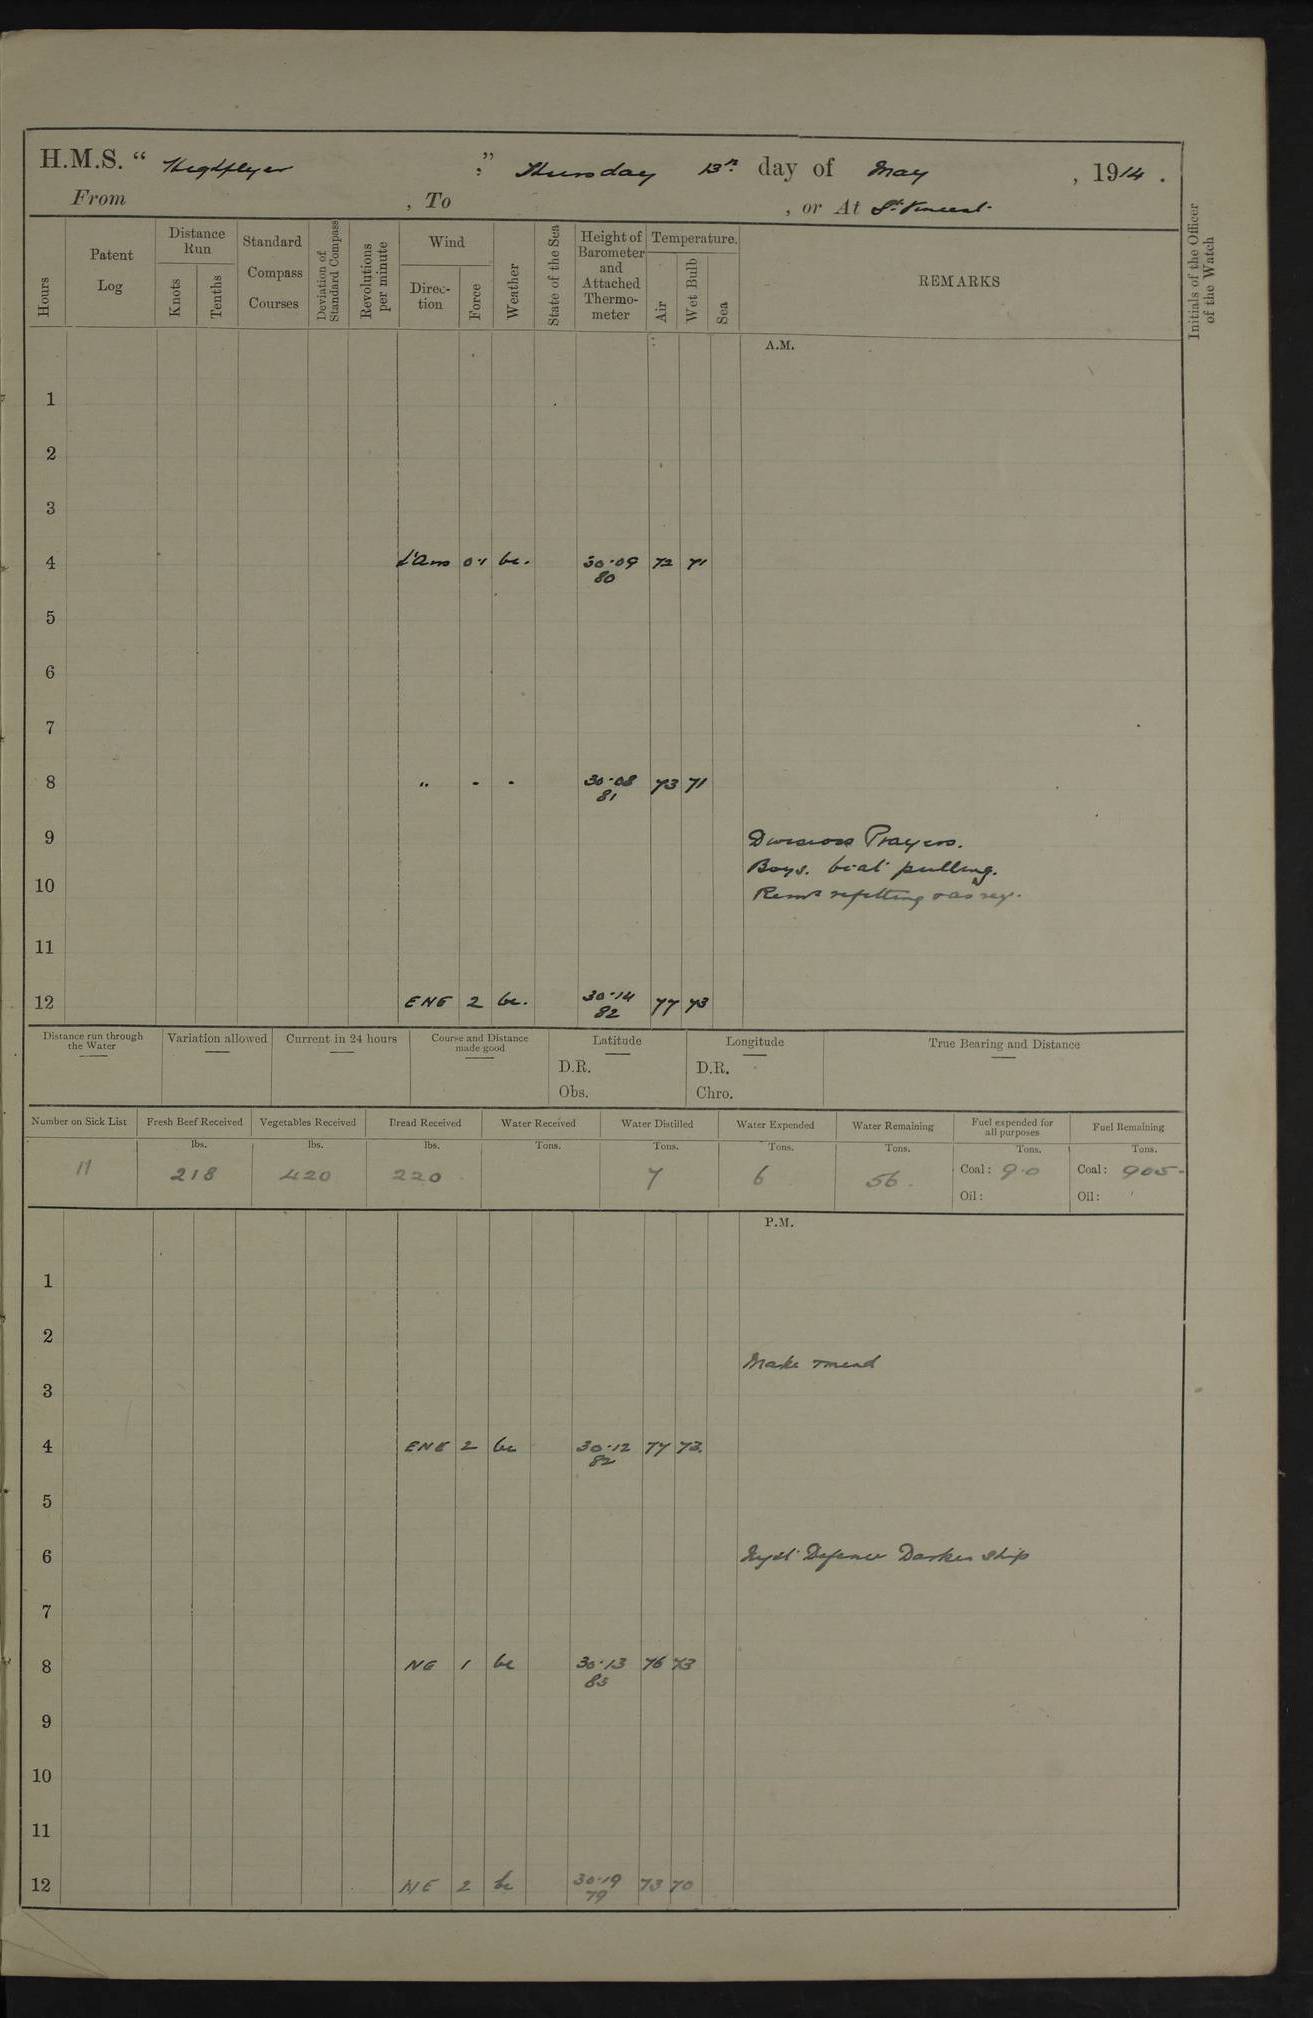 H.M.S. “ Highflyer ,” Thursday 13th day of May , 1914 .
From , To , or At St. Vincent
Hours
Patent Log
Distance Run
Knots
Tenths
Standard Compass Courses
Deviation of Standard Compass
Revolutions per minute
Wind
Direc-tion
Force
Weather
State of the Sea
Height of Barometer and Attached Thermo-meter
Temperature.
Air
Wet Bulb
Sea
REMARKS
Initials of the Officer of the Watch
A.M.
1
2
3
4 L'Airs 0·1 bc. 30·09 72 71
80
5
6
7
8 " - - 30·08 73 71
81
9 Divisions Prayers.
Boys. boat pulling.
10 refitting
11
12 ENE 2 bc. 30·14 77 73
82
Distance run through the Water
Variation allowed
Current in 24 hours
Course and Distance made good
Latitude
D.R.
Obs.
Longitude
D.R.
Chro.
True Bearing and Distance
Number on Sick List Fresh Beef Received Vegetables Received Bread Received Water Received Water Distilled Water Expended Water Remaining Fuel expended for all purposes Fuel Remaining
lbs. lbs. lbs. Tons. Tons. Tons. Tons. Tons. Tons.
11 218 420 220 7 6 56. Coal: 9·0 Coal: 905
Oil: Oil:
P.M.
1
2
Make & mend
3
4 ENE 2 bc 30·12 77 73.
82
5
6 Night Defence Darken Ship
7
8 NE 1 bc 30·13 76 73
83
9
10
11
12 NE 2 bc 30·19 73 70
79